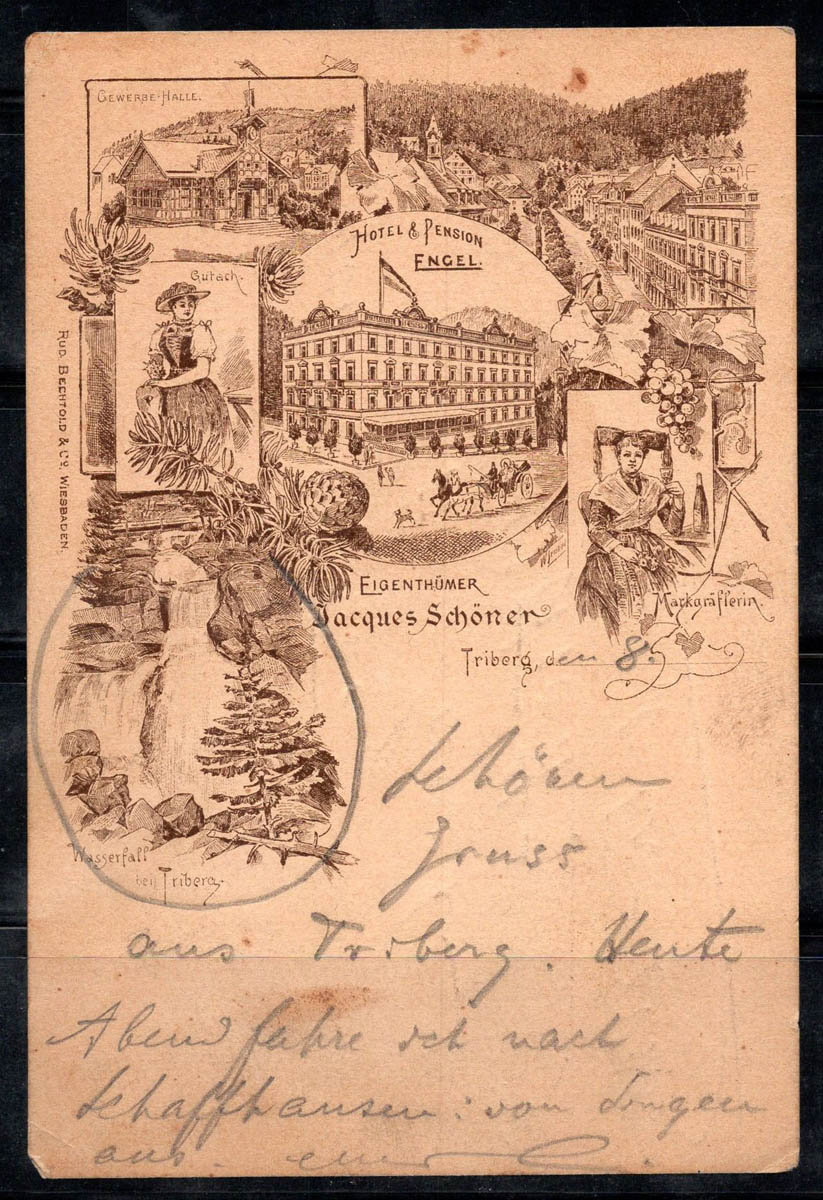 GEWERBE-HALLE.
HOTEL & PENSION
ENGEL.
Gutach.
RUD. BECHTOLD & Co. WIESBADEN.
EIGENTHÜMER
Jacques Schöner
Markgräflerin.
Triberg, den 8.
Wasserfall
bei Triberg.
Schönen
Gruss
aus Triberg. Heute
Abend fahre ich nach
Schaffhausen: von Singen
aus.